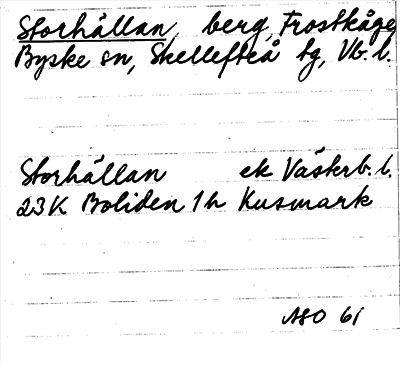 Storhällan, berg, Frostkåge
Byske sn, Skellefteå tg, Vb. l.
Storhällan ek Västerb. l.
23K Boliden 1h Kusmark
ASO 61